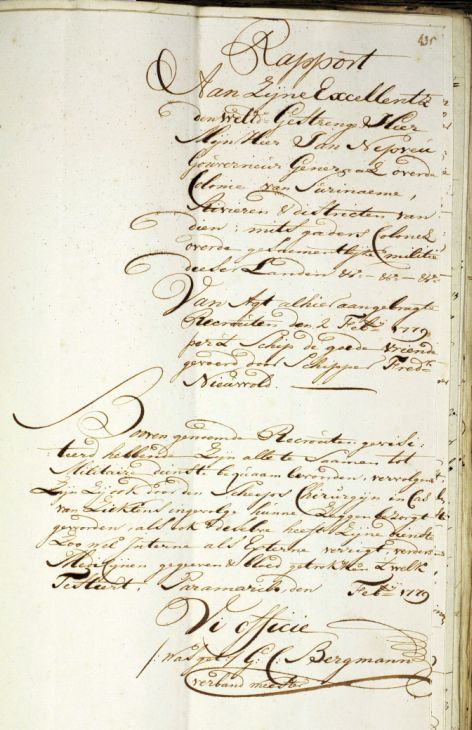 435
Rapport
Aan Zijne Excellentie
den Weled: Gestreng: Heer
Mijn Heer Jan Nepveu
Gouverneur Generaal over de
Colonie van Surinaeme,
Rivieren & districten van
dien, mitsgaders Colonel
over de gesamentlijke militie
deeser Landen &c: - &c: - &c:
Van Agt alhier aangebragte
Recruiten den 2 Febr: 1779
per 't Schip de goede vriende
gevoerd door Schipper Fred:
Nieuwold.
Boven genoemde Recruiten gevisi:
teerd hebbende Zijn alle te Samen tot
Militaire dienst bequaam bevonden, vervolgens
Zijn Zij ook door den Scheeps Chirurgijn in Cas
van Ziektens ingevolge hunne Zeggen bezorgt
geworden, als ook deselve heeft Zijne dienst
Zoo wel Interne als Externe verrigt, verders
Medicijnen gegeven & bloed getrokken 't welk
Testeert, Paramaribo den Febr: 1779
Vi officie
/: Was get: / G: C: Bergmann
verband meester